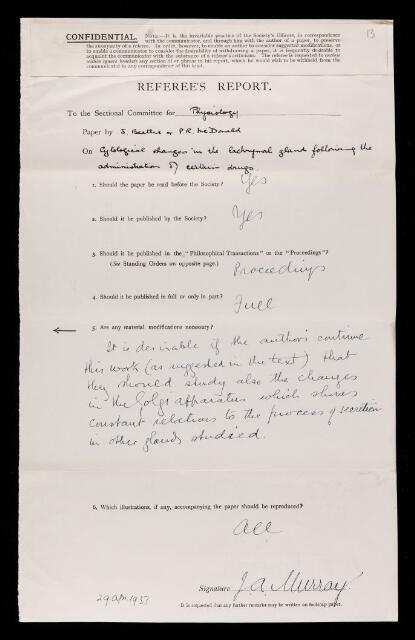 13
CONFIDENTIAL.
NOTE.—It is the invariable practice of the Society's Officers, in correspondence
with the communicator, and through him with the author of a paper, to preserve
the anonymity of a referee. In order, however, to enable an author to consider suggested modifications, or
to enable a communicator to consider the desirability of withdrawing a paper, it is frequently desirable to
acquaint the communicator with the substance of a referee's criticisms. The referee is requested to enclose
within square brackets any section of or phrase in his report, which he would wish to be withheld from the
communicator in any correspondence of this kind.
REFEREE'S REPORT.
To the Sectional Committee for Physiology
Paper by J. Beattie & P.R. McDonald
On Cytological changes in the lachrymal gland following the
administration of certain drugs.
1. Should the paper be read before the Society?
Yes
2. Should it be published by the Society?
Yes
3. Should it be published in the "Philosophical Transactions" or the "Proceedings"?
(See Standing Orders on opposite page.)
Proceedings
4. Should it be published in full or only in part?
Full
5. Are any material modifications necessary?
It is desirable if the authors continue
this work (as suggested in the text) that
they should study also the changes
in the Golgi apparatus which shows
constant relations to the process of secretion
in other glands studied.
6. Which illustrations, if any, accompanying the paper should be reproduced?
All
Signature J A Murray.
29 apr. 1937
It is requested that any further remarks may be written on foolscap paper.